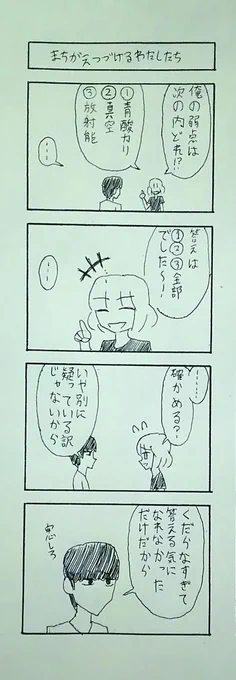 まちがえつづけるわたしたち
俺の弱点は
次の内どれ!?
①青酸カリ
②真空
③放射能
…
答えは
①②③全部
でした〜!
…
……
確かめる?
いや別に
疑っている訳
じゃないから
くだらなすぎて
答える気に
なれなかった
だけだから
安心しろ